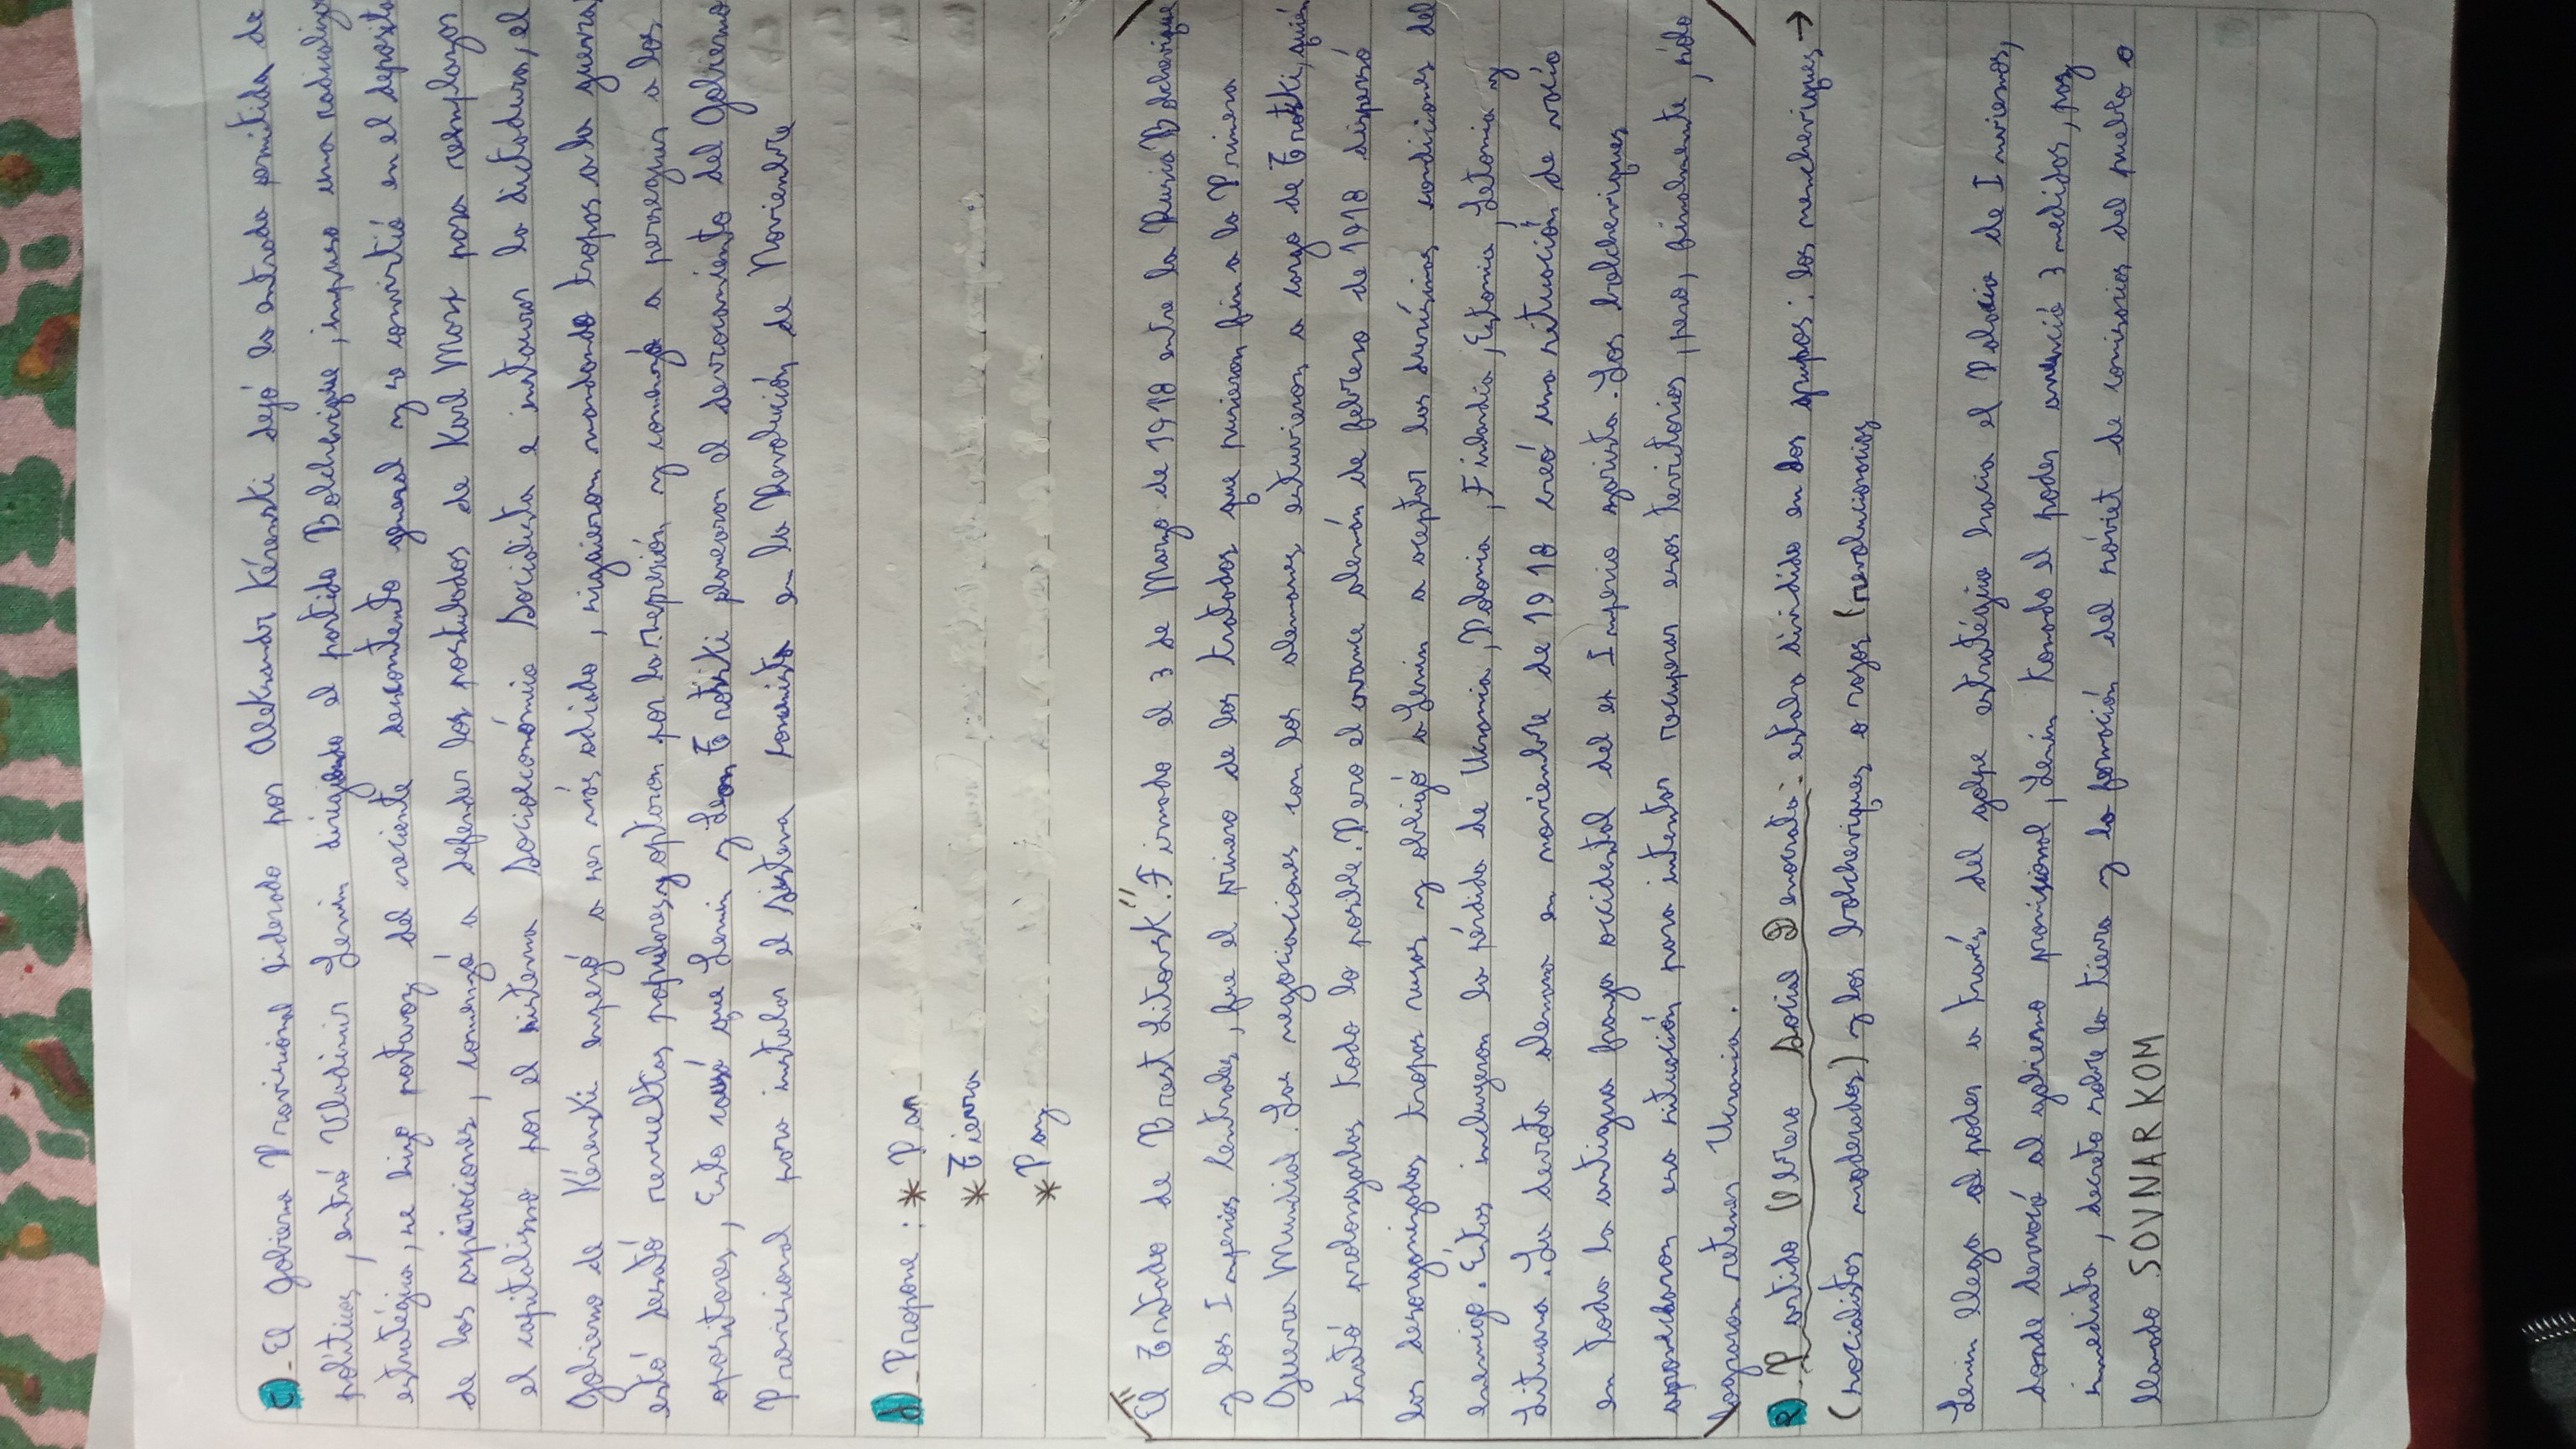 c)_El gobierno Provisional liderado por Aleksandr Kérenski dejó la entrada permitida de
políticos, entró Vladimir Lenin dirigiendo el partido Bolchevique, impuso una radicaliza
estratégia, se hizo portavoz del reciente descontento general y se convirtió en el deposita
de las aspiraciones, comenzó a defender los postulados de Karl Marx para remplazar
el capitalismo por el sistema Socioeconómico Socialista e instaurar la dictadura, el
Gobierno de Kérenski empezó a ser más odiado, siguieron mandando tropas a la guerra,
esto desató revueltas populares y optaron por la represión y comenzó a perseguir a los
opositores, Esto causó que Lenin y Leon Trotski planearan el derrocamiento del Gobierno
Provisional para instalar el sistema comunista en la Revolución de Noviembre
d)_Propone: * Pan
* Tierra
* Paz
"El Tratado de Brest Litovsk": Firmado el 3 de Marzo de 1918 entre la Rusia Bolchevique
y los Imperios Centrales, fue el primero de los tratados que pusieron fin a la Primera
Guerra Mundial. Las negociaciones con los alemanes estuvieron a cargo de Trotski, quién
trató prolongarlas todo lo posible. Pero el avance alemán de febrero de 1918 dispersó
las desorganizadas tropas rusas y obligó a Lenin a aceptar las durísimas condiciones del
enemigo. Estas incluyeron la pérdida de Ucrania, Polonia, Finlandia, Estonia, Letonia y
Lituania. La derrota alemana en noviembre de 1918 creó una situación de vacío
en toda la antigua franja occidental del ex Imperio zarista. Los bolcheviques
aprovecharon esa situación para intentar recuperar esos territorios, pero, finalmente, sólo
lograron retener Ucrania.
e)_Partido Obrero Social Demócrata: estaba dividido en dos grupos: los mencheviques →
(socialistas moderados) y los bolcheviques o rojos (revolucionarios
Lenin llega al poder a través del golpe estratégico hacia el Palacio de Invierno,
donde derrocó al gobierno provisional, Lenin tomado el poder anunció 3 medidas, paz
inmediata, decreto sobre la tierra y la formación del sóviet de comisarios del pueblo o
llamado SOVNARKOM